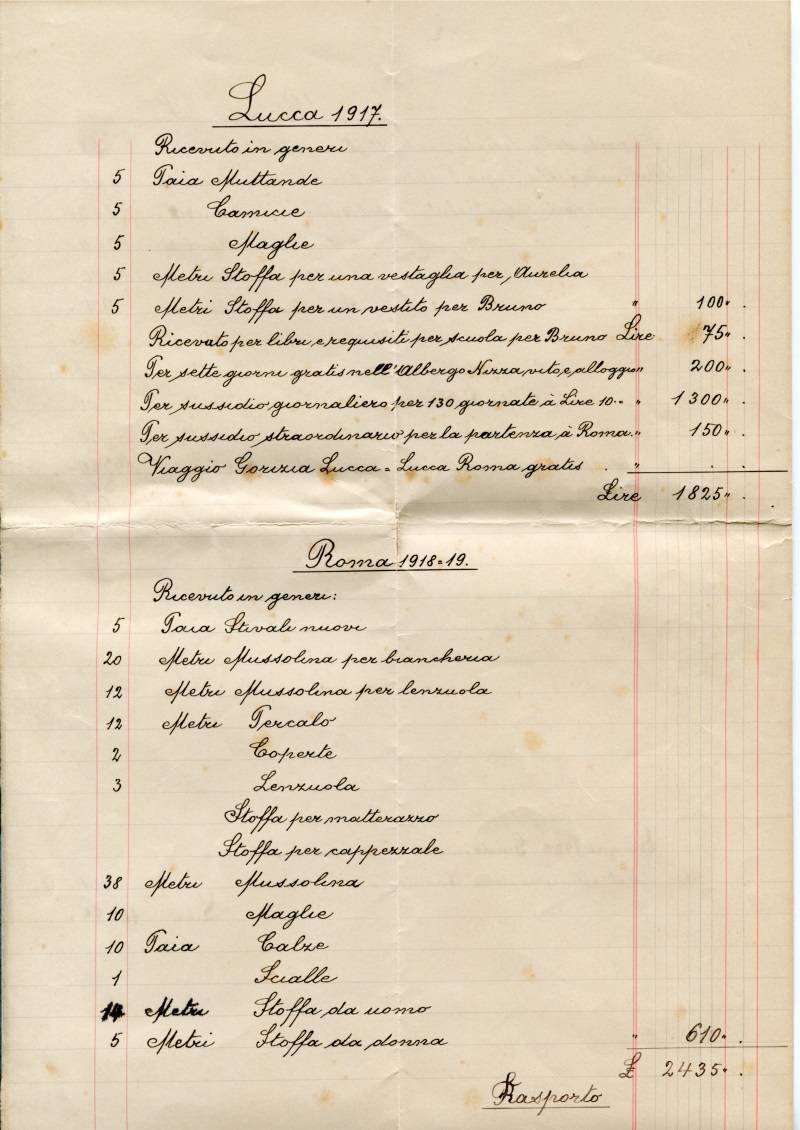 Lucca 1917.
Ricevuto in generi
5 Paia Muttande
5 Camicie
5 Maglie
5 Metri Stoffa per una vestaglia per Aurelia
5 Metri Stoffa per un vestito per Bruno " 100" .
Ricevuto per libri e requisiti per scuola per Bruno Lire 75" .
Per sette giorni gratis nell'Albergo Nizza, vito, e, alloggio " 200" .
Per sussidio giornaliero per 130 giornate à Lire 10.- " 1300" .
Per sussidio straordinario per la partenza à Roma. " 150" .
Viaggio Gorizia Lucca = Lucca Roma gratis . " . .
Lire 1825" .
Roma 1918=19.
Ricevuto in generi:
5 Paia Stivali nuovi
20 Metri Mussolina per biancheria
12 Metri Mussolina per lenzuola
12 Metri Percalo
2 Coperte
3 Lenzuola
Stoffa per matterazzo
Stoffa per cappezzale
38 Metri Mussolina
10 Maglie
10 Paia Calze
1 Scialle
14 Metri Stoffa da uomo
5 Metri Stoffa da donna " 610" .
£ 2435" .
Rasporto